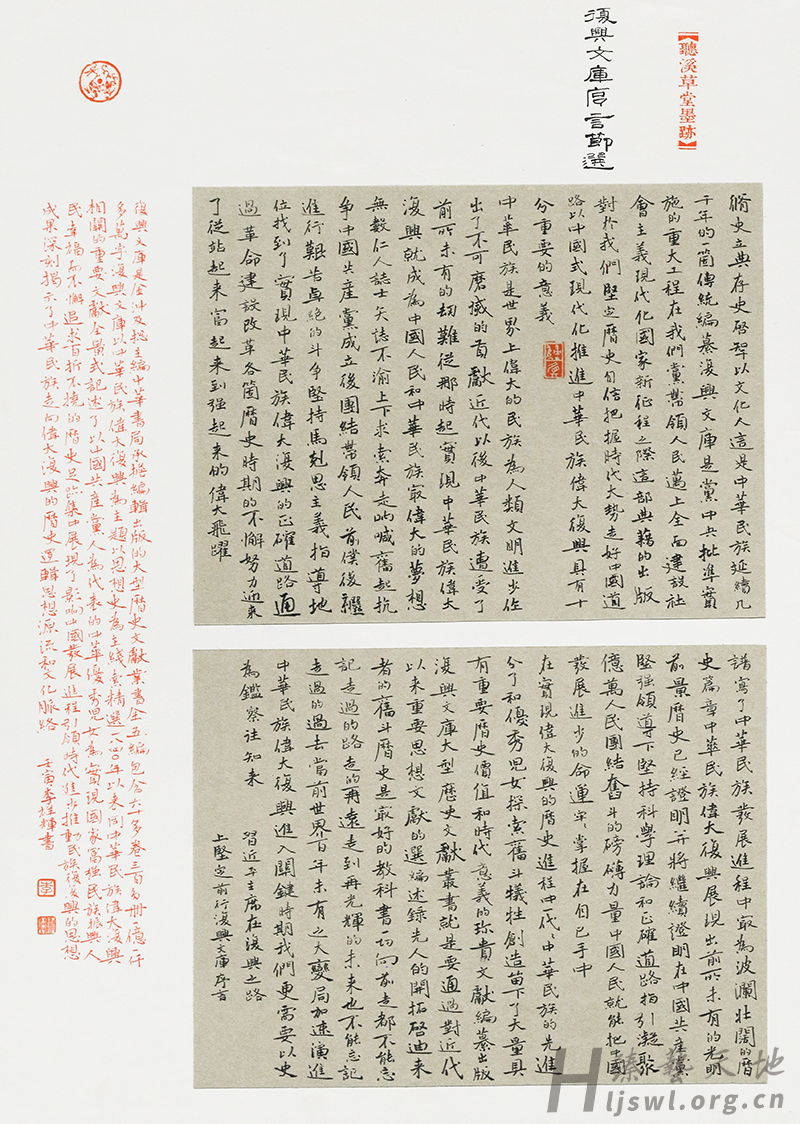 【聽溪草堂墨跡】
復興文庫序言節選
脩史立典存史啓智以文化人這是中華民族延續几
千年的一箇傳統編纂復興文庫是黨中央批準實
施的重大工程在我們黨帶領人民邁上全面建設社
會主義現代化國家新征程之際這部典籍的出版
對於我們堅定曆史自信把握時代大勢走好中國道
路以中國式現代化推進中華民族偉大復興具有十
分重要的意義
中華民族是世界上偉大的民族為人類文明進步作
出了不可磨滅的貢獻近代以後中華民族遭受了
前所未有的劫難從那時起實現中華民族偉大
復興就成為中國人民和中華民族最偉大的夢想
無數仁人誌士矢誌不渝上下求索奔走吶喊奮起抗
争中國共產黨成立後團結帶領人民前僕後繼
進行艱苦卓絶的斗争堅持馬剋思主義指導地
位找到了實現中華民族偉大復興的正確道路通
過革命建設改革各箇曆史時期的不懈努力迎來
了從站起來富起來到強起來的偉大飛躍
譜寫了中華民族發展進程中最為波瀾壯闊的曆
史篇章中華民族偉大復興展現出前所未有的光明
前景曆史已經證明并將繼續證明在中國共產黨
堅強領導下堅持科學理論和正確道路指引凝聚
億萬人民團結奮斗的磅礴力量中國人民就能把中國
發展進步的命運牢牢掌握在自已手中
在實現偉大復興的曆史進程中一代代中華民族的先進
分子和優秀兒女探索奮斗犧牲創造留下了大量具
有重要曆史價值和時代意義的珍貴文獻編纂出版
復興文庫大型歷史文獻叢書就是要通過對近代
以來重要思想文獻的選編述錄先人的開拓啓迪來
者的奮斗曆史是最好的教科書一切向前走都不能忘
記走過的路走的再遠走到再光輝的未來也不能忘記
走過的過去當前世界百年未有之大變局加速演進
中華民族偉大復興進入關鍵時期我們更需要以史
為鑑察往知來
習近平主席在復興之路
上堅定前行復興文庫序言
復興文庫是金沖及總主編中華書局承擔編輯出版的大型曆史文獻叢書全五編包含六十多卷三百多冊億一千
多萬字復興文庫以中華民族偉大復興為主題以思想史為主线索精選一八四〇年以來同中華民族偉大復興
相關的重要文獻全景式記述了以中國共產黨人為代表的中華優秀兒女為實現國家富強民族振興人
民幸福而不懈追求百折不撓的曆史足跡集中展現了影响中國發展進程引領時代進步推動民族復興的思想
成果深刻揭示了中華民族走向偉大復興的曆史邏輯思想源流和文化脈絡
壬寅李桂輝書
臻藝天地
Hljswl.org.cn